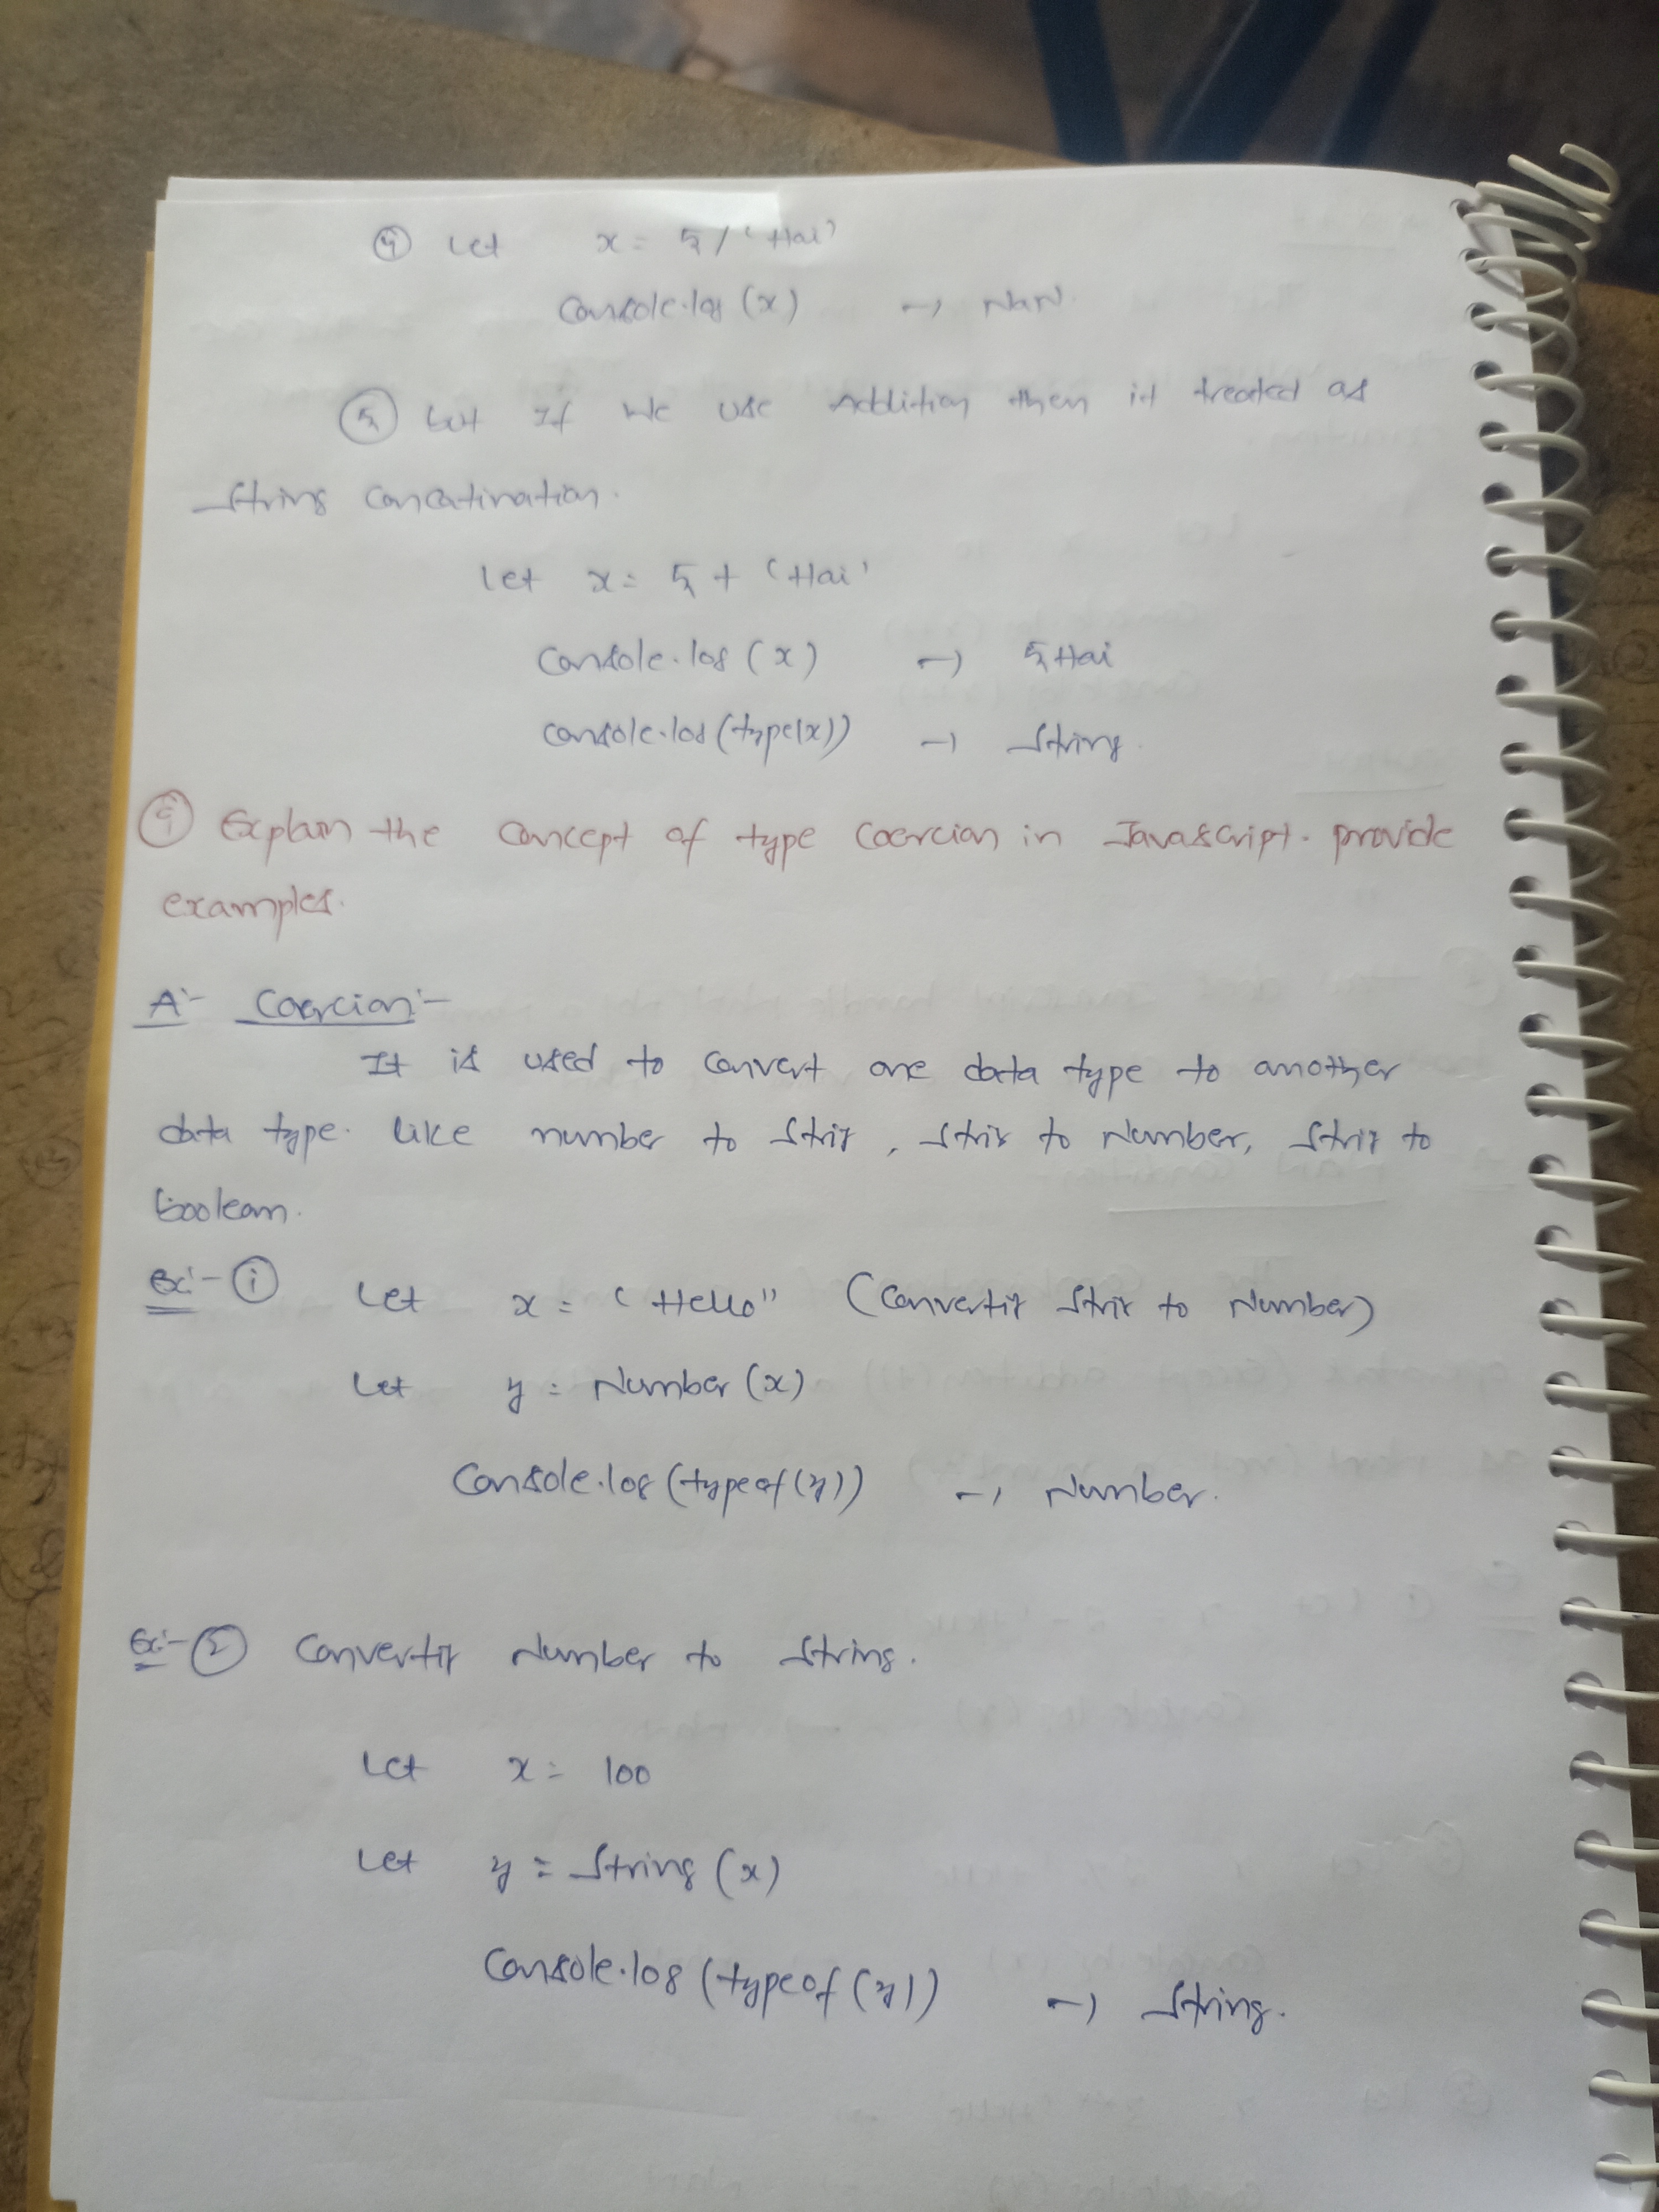 ④ Let x = 5 / 'Hai'
Console.log (x) → NaN.
⑤ but If We use Addition then it treated as
String Concatination.
Let x = 5 + 'Hai'
Console.log (x) → 5Hai
console.log (type(x)) → String.
④ Explain the concept of type Coercion in Javascript. provide
examples.
A:- Coercion:-
It is used to convert one data type to another
data type. Like number to Strig, Strig to Number, Strig to
boolean.
Ex:- ① Let x = 'Hello" (Convertig Strig to Number)
Let y = Number (x)
Console.log (typeof (y)) → Number.
Ex:- ② Convertig Number to String.
Let x = 100
Let y = String (x)
Console.log (typeof (y)) → String.